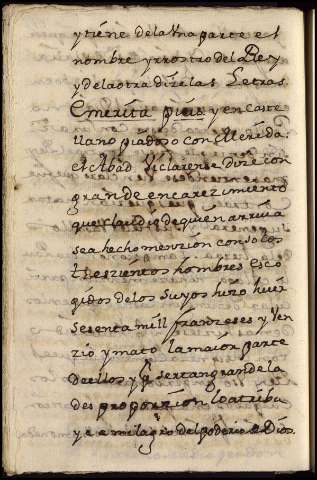 y tiene de la Una parte el
nombre y rrostro del Rey
y de la otra dize las Letras
Emerita pius y en caste
llano piadoso con Merida:
el Abad Viclarense dize con
grande encarezimiento
que claudio de quien arriua
sea hecho menzion con solos
trescientos hombres esco
gidos de los suyos hizo huir
sesenta mill franzeses y Ven
zio y mato la maior parte
de ellos y ser tan grande la
des proporzion lo atribu
ye a milagro del poder de Dios